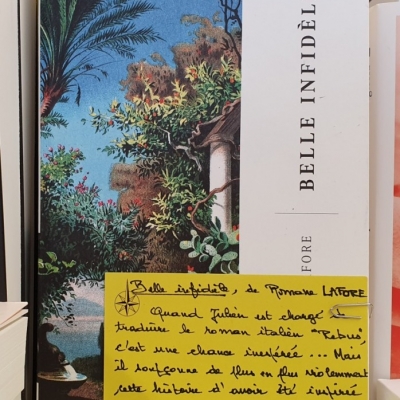 BELLE INFIDÈL
FORE
Belle infidèle, de Romane LAFORE
Quand Julien est chargé de
traduire le roman italien "Rebus",
c'est une chance inespérée ... Mais
il soupçonne de plus en plus violemment
cette histoire d'avoir été inspirée